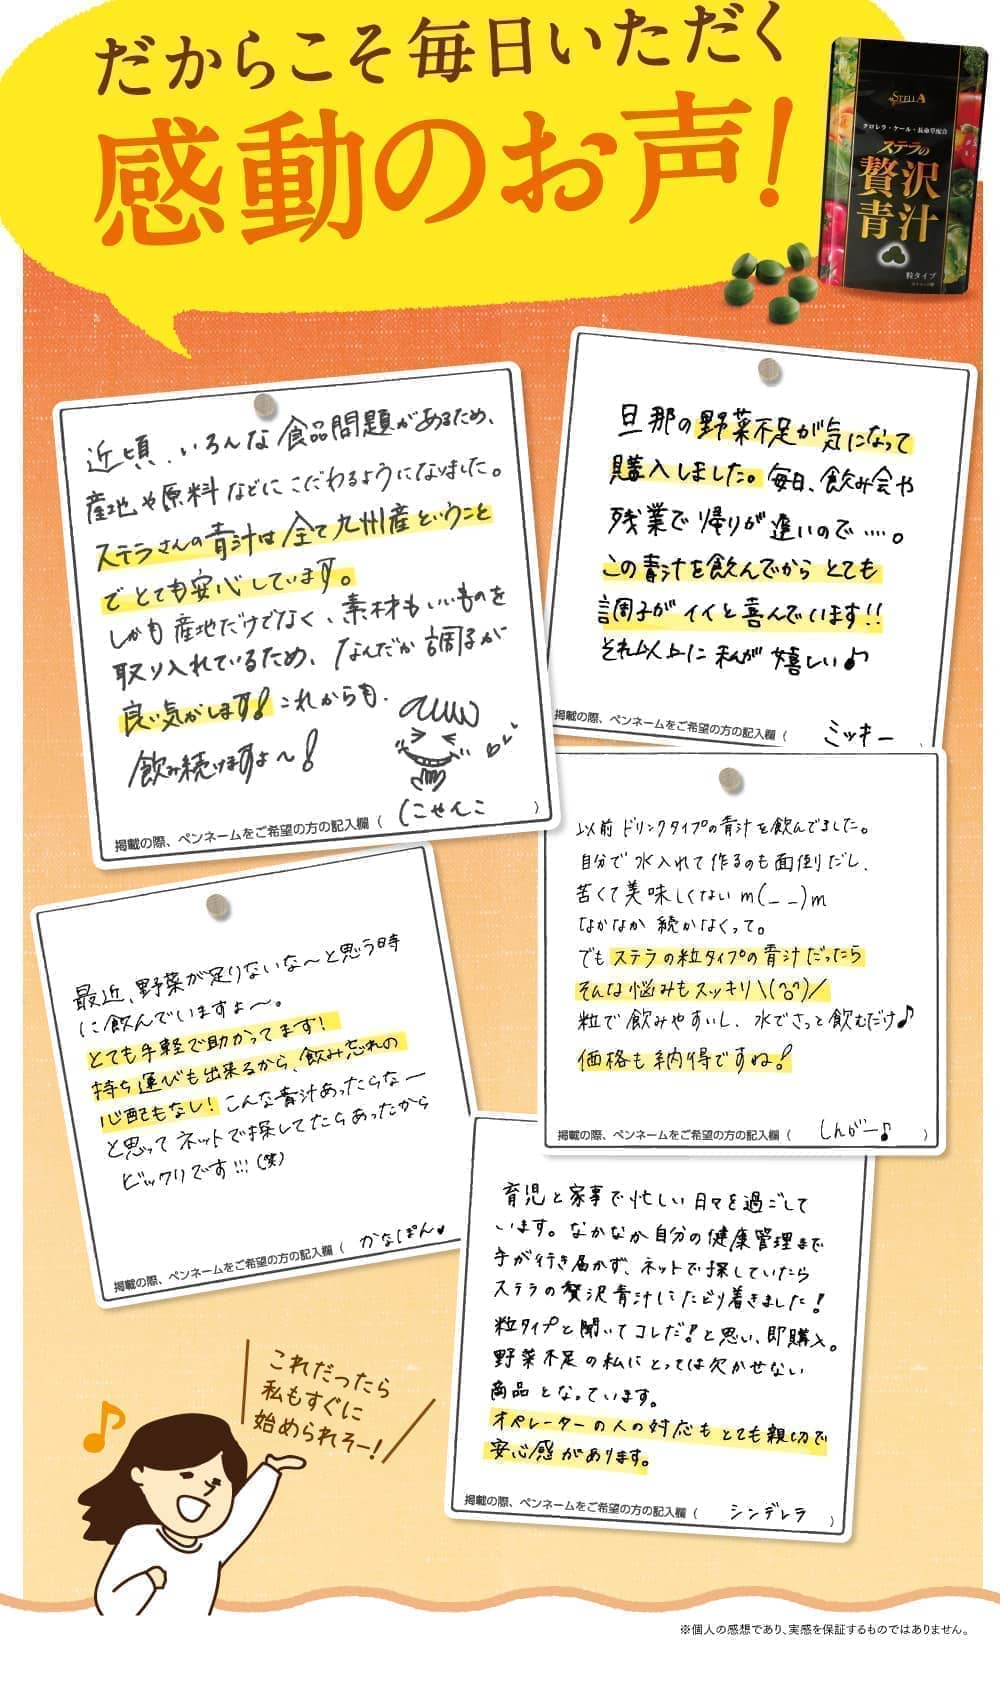 だからこそ毎日いただく
感動のお声!
STELLA
クロレラ・ケール・長命草配合
ステラの
贅沢
青汁
粒タイプ
近頃、いろんな食品問題があるため、
産地や原料などにこだわるようになりました。
ステラさんの青汁は全て九州産ということ
でとても安心しています。
しかも産地だけでなく、素材もいいものを
取り入れているため、なんだか調子が
良い気がします!これからも、
飲み続けますよ〜!
掲載の際、ペンネームをご希望の方の記入欄(こせんこ)
旦那の野菜不足が気になって
購入しました。毎日、飲み会や
残業で帰りが遅いので….。
この青汁を飲んでから とても
調子がイイと喜んでいます!!
それ以上に私が嬉しい♪
掲載の際、ペンネームをご希望の方の記入欄(ミッキー)
以前ドリンクタイプの青汁を飲んでました。
自分で水入れて作るのも面倒だし、
苦くて美味しくないm(_ _)m
なかなか続かなくって。
でもステラの粒タイプの青汁だったら
そんな悩みもスッキリ\(^o^)/
粒で飲みやすいし、水でさっと飲むだけ♪
価格も納得ですね!
掲載の際、ペンネームをご希望の方の記入欄(しんがー♪)
最近、野菜が足りないな〜と思う時
に飲んでいますよ〜。
とても手軽で助かってます!
持ち運びも出来るから、飲み忘れの
心配もなし!こんな青汁あったらなー
と思ってネットで探してたらあったから
ビックリです!!!(笑)
掲載の際、ペンネームをご希望の方の記入欄(かなぽん♥
育児と家事で忙しい日々を過ごして
います。なかなか自分の健康管理まで
手が行き届かず、ネットで探していたら
ステラの贅沢青汁にたどり着きました!
粒タイプと聞いてコレだ!と思い、即購入。
野菜不足の私にとっては欠かせない
商品となっています。
オペレーターの人の対応もとても親切で
安心感があります。
掲載の際、ペンネームをご希望の方の記入欄(シンデレラ)
これだったら
私もすぐに
始められそー!
※個人の感想であり、実感を保証するものではありません。